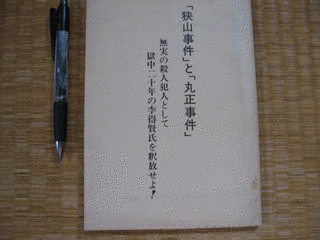 「狭山事件」と「丸正事件」
無実の殺人犯人として
獄中二十年の李得賢氏を釈放せよ！